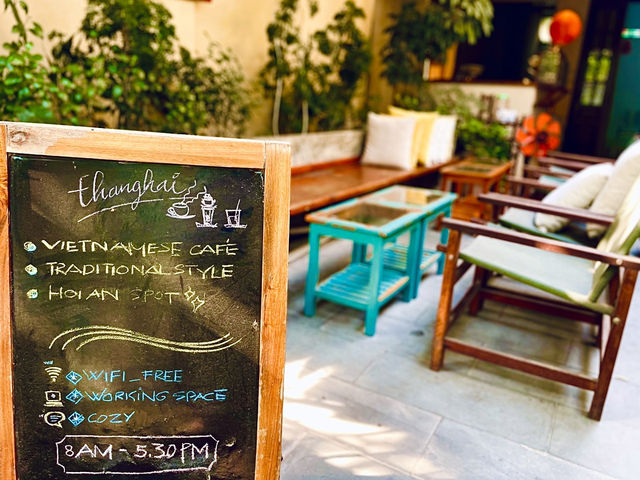 thanghai
VIETNAMESE CAFÉ
TRADITIONAL STYLE
HOI AN SPOT
WIFI_FREE
WORKING SPACE
COZY
8AM - 5.30PM